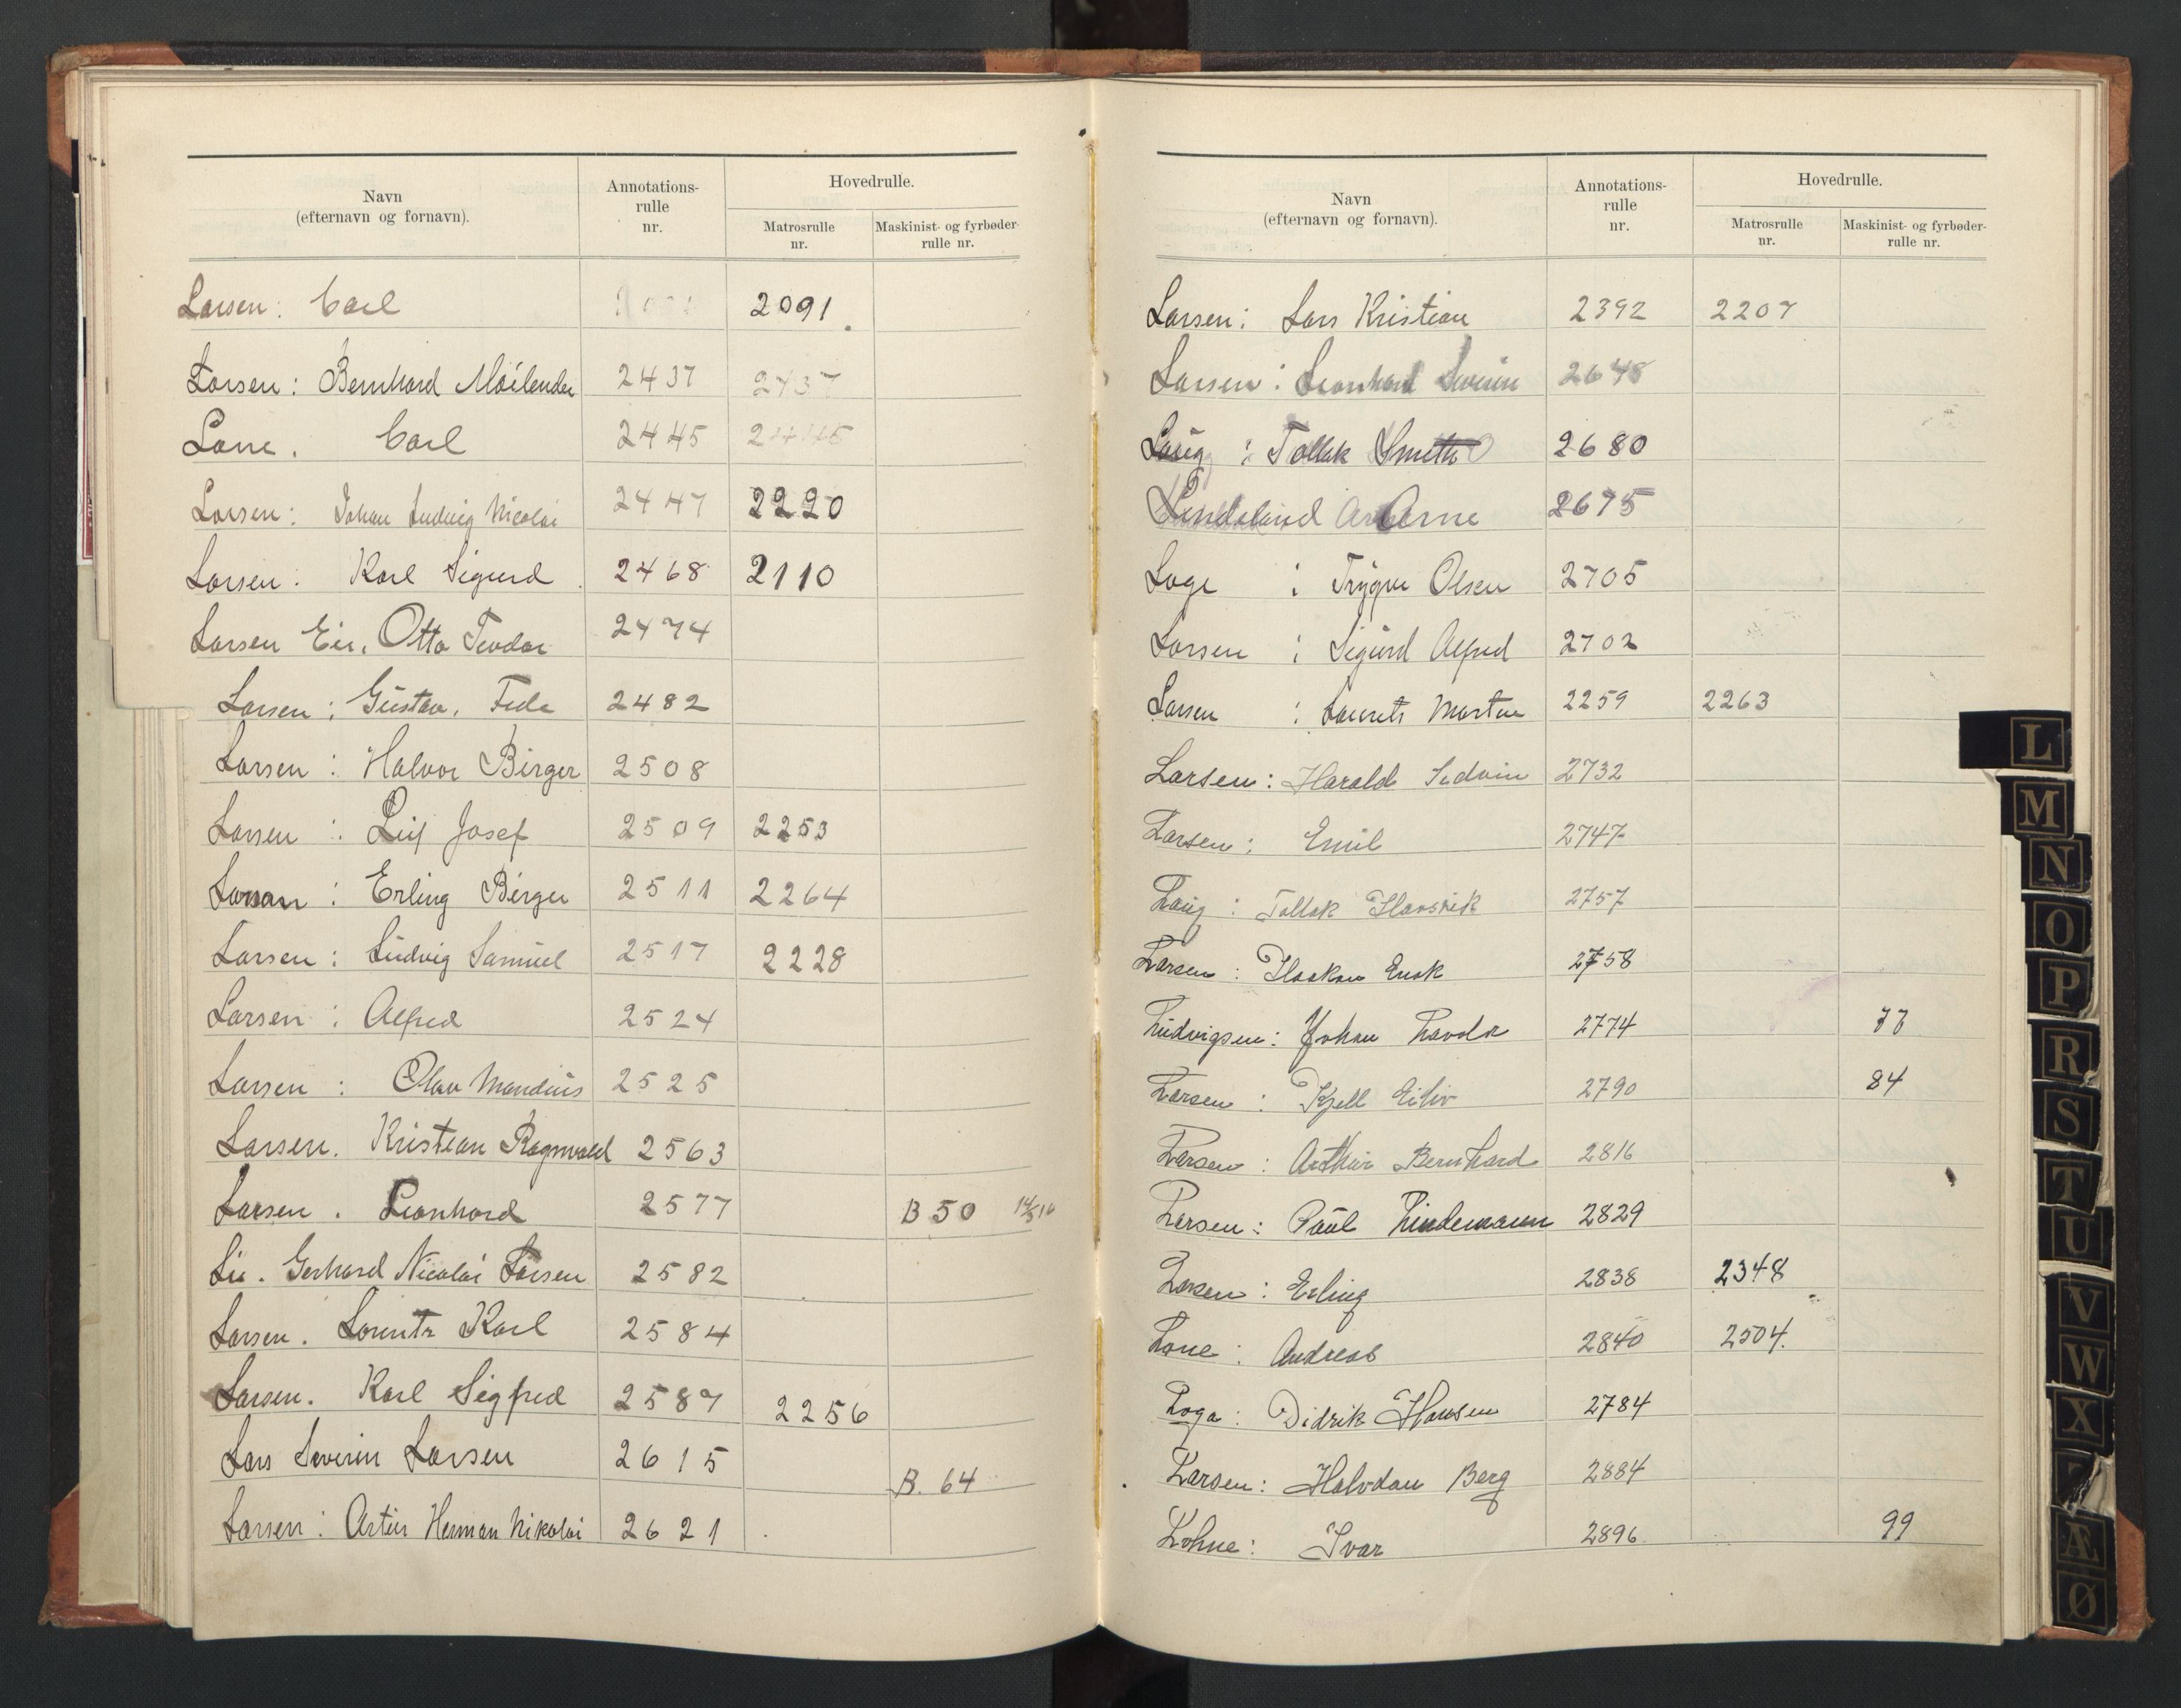 Navn
(efternavn og fornavn).
Annotations-
rulle
nr.
Hovedrulle.
Matrosrulle
nr.
Maskinist- og fyrbøder-
rulle nr.
Larsen: Carl 2091.
Larsen: Bernhard 2437 2437
Lone. Carl 2445 2445
Larsen: Johan Ludvig Nicolai 2447 2220
Larsen: Karl Sigurd 2468 2110
Larsen Otto Teodor 2474
Larsen: Gustav. 2482
Larsen: Halvor Birger 2508
Larsen: Leif Josef 2509 2253
Larsen: Erling Birger 2511 2264
Larsen: Ludvig Samuel 2517 2228
Larsen: Alfred 2524
Larsen: Olav Mandius 2525
Larsen. Kristian Ragnvald 2563
Larsen. Leonhard 2577 B 50
Lie. Gerhard Nicolai Larsen 2582
Larsen. Lorentz Karl 2584
Larsen. Karl Sigfred 2587 2256
Lars Severin Larsen 2615 B. 64
Larsen: Artur Herman Nikolai 2621
Navn
(efternavn og fornavn).
Annotations-
rulle
nr.
Hovedrulle.
Matrosrulle
nr.
Maskinist- og fyrbøder-
rulle nr.
Larsen: Lars Kristian 2392 2207
Larsen: Leonhard Severin 2648
Laug: Tollak Smith 2680
Lindeland Arne 2675
Loge: Trygve Olsen 2705
Larsen: Sigurd Alfred 2702
Larsen: Laurits Martin 2259 2263
Larsen: Harald Sedvin 2732
Larsen: Emil 2747
Laug: Tollak 2757
Larsen: Haakon Enok 2758
Ludvigsen: Johan 2774 77
Larsen: Kjell Eiliv 2790 84
Larsen: Arthur Bernhard 2816
Larsen: Paul Lindemann 2829
Larsen: Erling 2838 2348
Lone: Andreas 2840 2504.
Loga: Didrik Hansen 2784
Larsen: Halvdan Berg 2884
Lohne: Ivar 2896 99
L
M
N
O
P
R
S
T
U
V
W
X
Æ
Ø